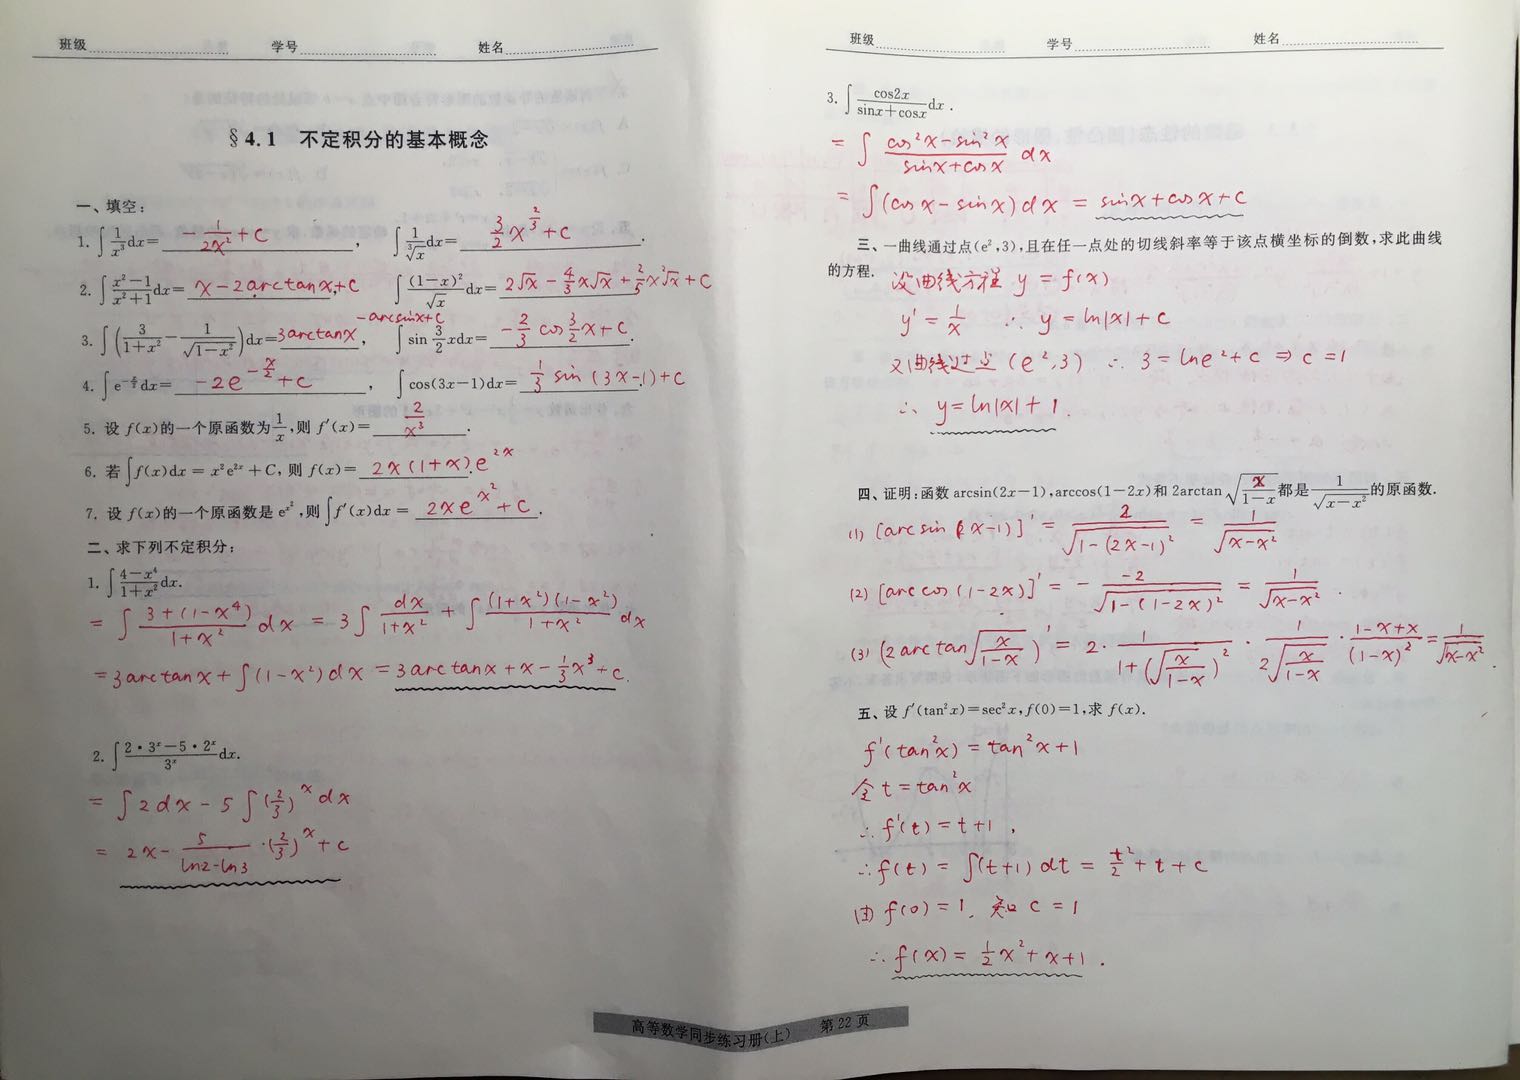 班级 学号 姓名
§4.1 不定积分的基本概念
一、填空:
1. ∫ 1/x³ dx = -1/(2x²) + C , ∫ 1/∛x dx = 3/2 x^(2/3) + C .
2. ∫ (x²-1)/(x²+1) dx = x - 2arctanx + C , ∫ (1-x)²/√x dx = 2√x - 4/3 x√x + 2/5 x²√x + C
3. ∫ (3/(1+x²) - 1/√(1-x²)) dx = 3arctanx - arcsinx + C , ∫ sin 3/2 xdx = -2/3 cos 3/2 x + C .
4. ∫ e^(-x/2) dx = -2e^(-x/2) + C , ∫ cos(3x-1)dx = 1/3 sin(3x-1) + C .
5. 设 f(x)的一个原函数为 1/x ,则 f′(x) = 2/x³ .
6. 若 ∫ f(x)dx = x²e^(2x) + C, 则 f(x) = 2x(1+x)e^(2x) .
7. 设 f(x)的一个原函数是 e^(x²) ,则 ∫ f′(x)dx = 2xe^(x²) + C .
二、求下列不定积分:
1. ∫ (4-x⁴)/(1+x²) dx.
= ∫ (3+(1-x⁴))/(1+x²) dx = 3∫ dx/(1+x²) + ∫ (1+x²)(1-x²)/(1+x²) dx
= 3arctanx + ∫(1-x²)dx = 3arctanx + x - 1/3 x³ + C.
2. ∫ (2·3^x - 5·2^x)/3^x dx.
= ∫ 2dx - 5∫ (2/3)^x dx
= 2x - 5/(ln2-ln3) ·(2/3)^x + C
班级 学号 姓名
3. ∫ cos2x/(sinx+cosx) dx .
= ∫ (cos²x - sin²x)/(sinx+cosx) dx
= ∫(cosx - sinx)dx = sinx + cosx + C
三、一曲线通过点(e²,3),且在任一点处的切线斜率等于该点横坐标的倒数,求此曲线
的方程. 设曲线方程 y = f(x)
y′ = 1/x ∴ y = ln|x| + C
又曲线过点(e²,3) ∴ 3 = lne² + C ⇒ C = 1
∴ y = ln|x| + 1 .
四、证明:函数 arcsin(2x-1),arccos(1-2x)和 2arctan√(x/(1-x)) 都是 1/√(x-x²) 的原函数.
(1) [arcsin(2x-1)]′ = 2/√(1-(2x-1)²) = 1/√(x-x²)
(2) [arccos(1-2x)]′ = - -2/√(1-(1-2x)²) = 1/√(x-x²) .
(3) (2arctan√(x/(1-x)))′ = 2· 1/(1+(√(x/(1-x)))²) · 1/(2√(x/(1-x))) · (1-x+x)/(1-x)² = 1/√(x-x²) .
五、设 f′(tan²x)=sec²x,f(0)=1,求 f(x).
f′(tan²x) = tan²x + 1
令 t = tan²x
∴ f′(t) = t+1 ,
∴ f(t) = ∫(t+1)dt = t²/2 + t + C
由 f(0) = 1, 知 C = 1
∴ f(x) = 1/2 x² + x + 1 .
高等数学同步练习册(上) 第 22 页